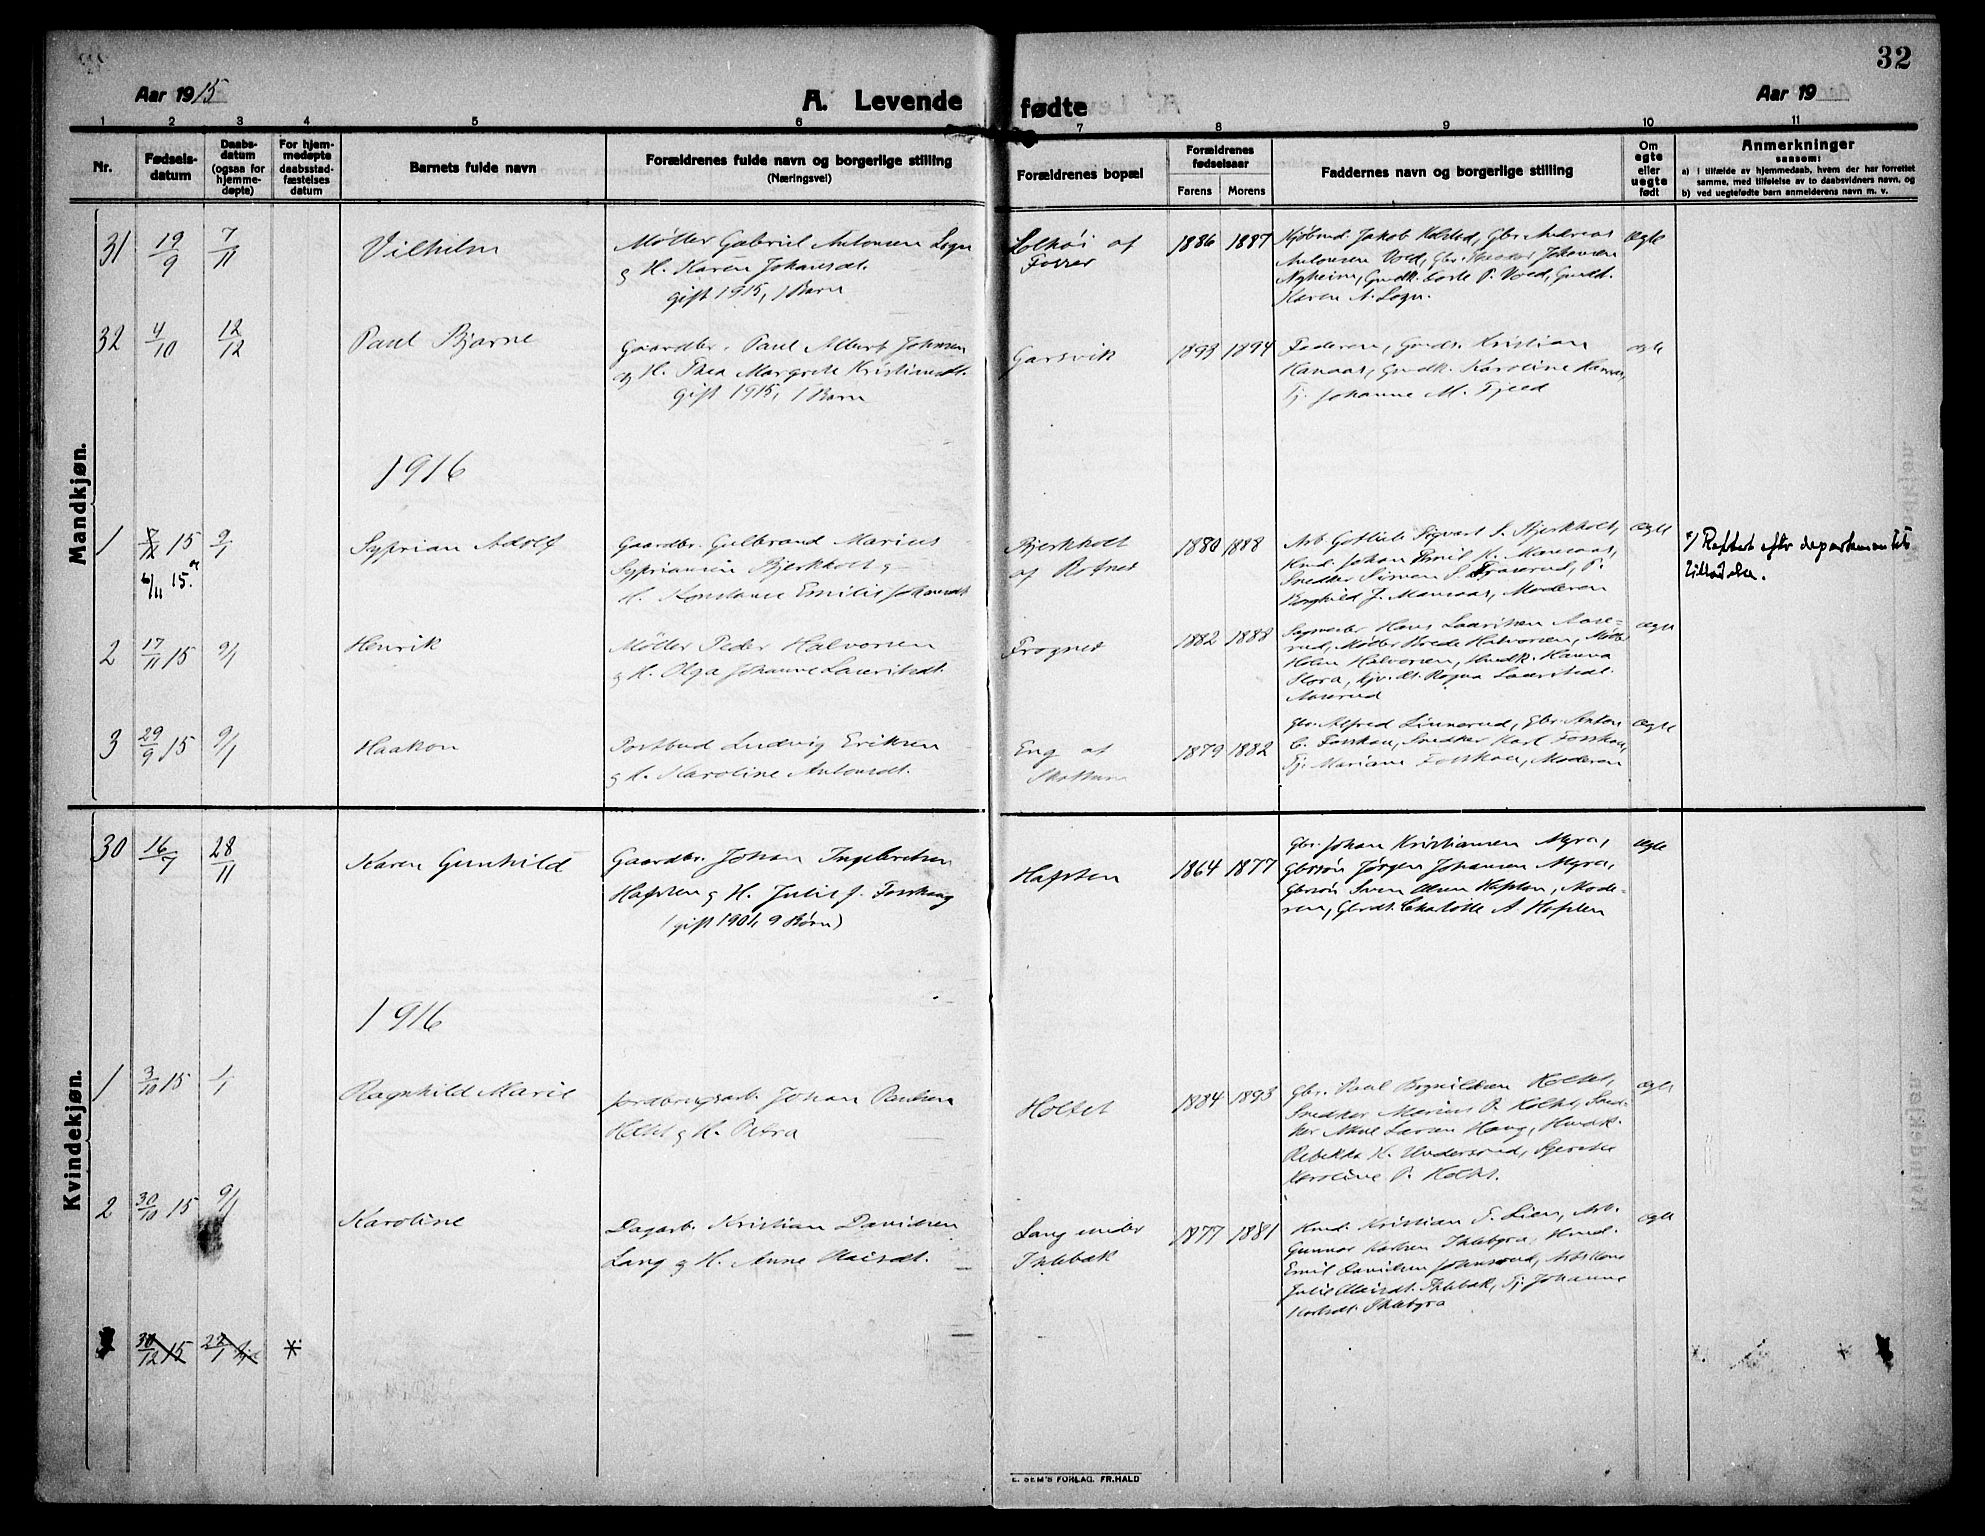 32
Aar 1915
A. Levende fødte
Aar 19
1 2 3 4 5 6 7 8 9 10 11
Nr.
Fødsels-
datum
Daabs-
datum
(ogsaa for
hjemme-
døpte)
For hjem-
medøpte
daabsstad-
fæstelses
datum
Barnets fulde navn
Forældrenes fulde navn og borgerlige stilling
(Næringsvei)
Forældrenes bopæl
Forældrenes
fødselsaar
Farens Morens
Faddernes navn og borgerlige stilling
Om
egte
eller
uegte
født
Anmerkninger
saasom:
a) i tilfælde av hjemmedaab, hvem der har forrettet
samme, med tilføielse av to daabsvidners navn, og
b) ved uegtefødte barn anmelderens navn m. v.
Mandkjøn.
31 19/9 7/11 Vilhelm
Møller Gabriel Antonsen Sogn
& H. Karen Johansdt.
gift 1915, 1 Barn
Solhøi af
1886 1887
Kjøbmd. Jakob Kolstad, Gbr. Andreas
Antonsen Vold, Gbr. Theodor Johansen
Nyheim, Gmdk. P. Vold, Gmdt.
Karen A. Sogn.
Ægte
32 4/10 12/12 Paul Bjarne
Gaardbr. Paul Albert Johnsen
og H. Thea Margrete Kristiansdt.
gift 1915, 1 Barn
Garsvik
1893 1894
Faderen, Gmds. Kristian
Kanaas, Gmdk. Karoline Kanaas,
Pj. Johanne M. Fjeld
ægte
1916
1 15 9/1 Syprian Adolf
6/11 15.
Gaardbr. Gulbrand Marius
Sypriansen Bjerkholt &
H. Konstance Emilie Johansdt
Bjerkholt
af Rofnes
1880 1888
Arb. Gottlieb Sigvart S. Bjerkholt,
Kmd. Johan Emil K. Manaas,
Snedker Simen S. P.
Borghild J. Manaas, Moderen
Ægte
*) Rettet efter departementets
tilladelse.
2 17/11 15 9/1 Henrik
Møller Peder Halvorsen
& H. Olga Johanne Lauritsdt.
Frognes
1882 1888
Sagmester Hans Lauritsen Aase-
rud, Møller Brede Halvorsen, Møller
Holm Halvorsen, Hmdk. Hanna
Flora, Kjv. dt. Ragna Lauritsdt.
Aaserud
ægte
3 29/9 15 9/1 Haakon
Postbud Ludvig Eriksen
& H. Karoline Antonsdt.
Eng af
1879 1882
Gbr. Alfred Linnerud, Gbr. Anton
C. Fosshau, Snedker Karl Fosshau,
Pj. Mariane Fosshau, Moderen
Ægte
Kvindekjøn.
30 16/7 28/11 Karen Gunhild
Gaardbr. Johan Ingebretsen
Hafsten & H. Julie J. Fosshaug
(gift 1901, 9 Børn)
Hafsten
1864 1877
Gbr. Johan Kristiansen Myra,
Gbrsøn Jørgen Johansen Myra,
Gbrsøn Sven Olsen Hafsten, Mode-
ren, Gbrdt. Charlotte A Hafsten
ægte
1916
1 3/10 15 1/1 Ragnhild Marie
Jordbrugsarb. Johan Paulsen
Holtet & H. Petra
Holtet
1884 1893
Gbr. Paul Holtet,
Snedker Marius P. Holtet, Sned-
ker Larsen Haug, Hmdk.
Rebekka K. Undersrud, Syerske
Karoline P. Holtet.
ægte
2 30/10 15 9/1 Karoline
Dagarb. Kristian Davidsen
Lang & H. Anne Olaisdt.
Lang under
1877 1881
Kmd. Kristian T. Lien, Arb.
Gunnar Karlsen Hmd.
Emil Davidsen Johnsrud,
Julie Olaisdt. Pj. Johanne
ægte
30/12 15 22/1 *
E. SEM'S FORLAG, FR.HALD